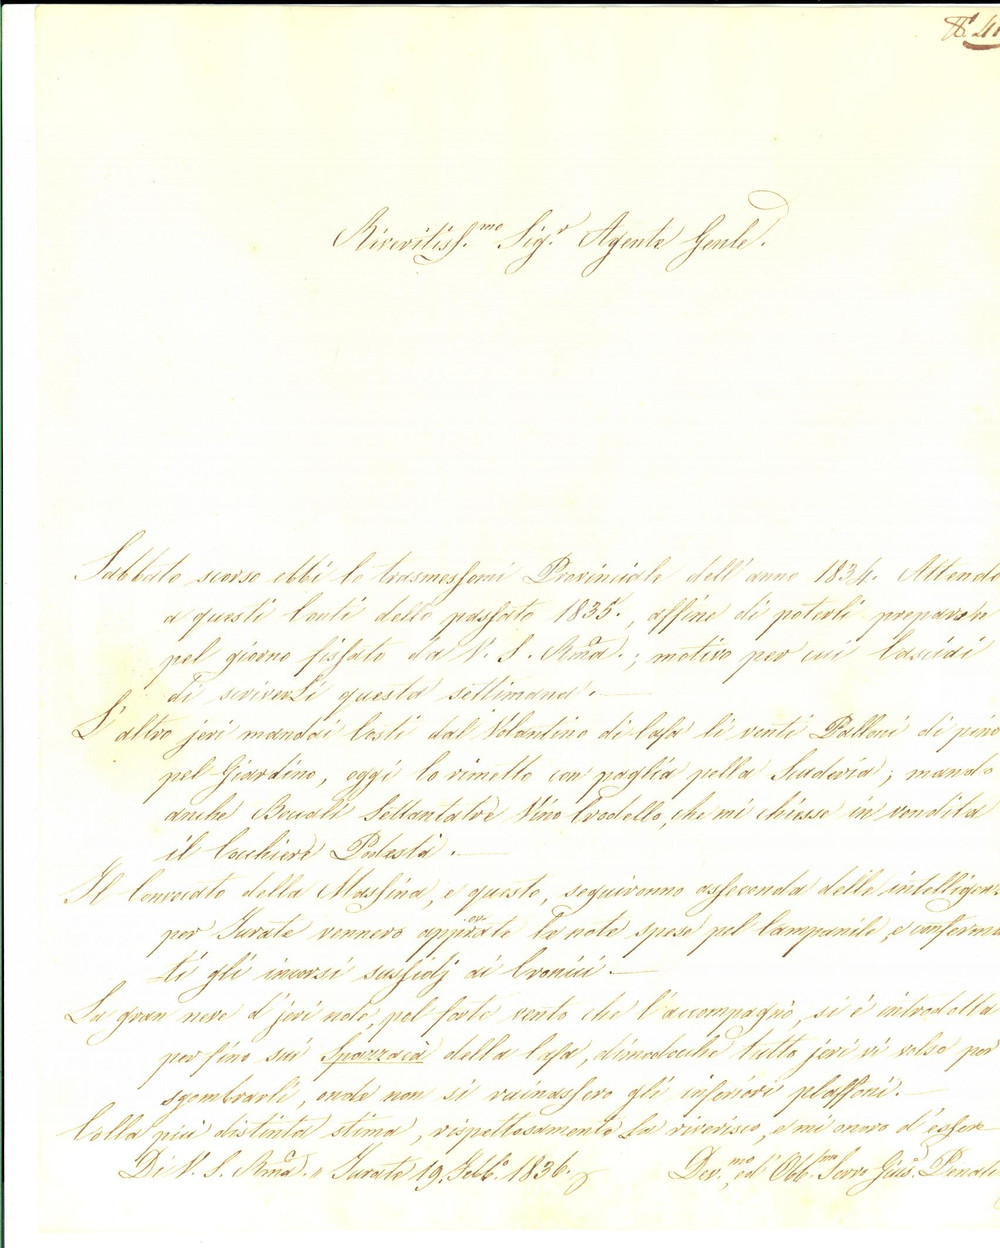 N.º 41
Riveritiss.mo Sig.r Agente Gen.le
Sabbato scorso ebbi lo trasmessomi Provinciale dell' anno 1834. Attendo
a questi Conti dello passato 1835., affine di poterli preparare
pel giorno fissato da V. S. Rma.; motivo per cui lasciai
di scriverLi questa settimana.
L' altro jeri mandai Costì dal Volantino di Casa li venti Palloni di pino
pel Giardino, oggi lo rimetto con paglia pella Scuderia; mando
anche Boccali Settantatrè Vino Crodello, che mi chiese in vendita
il Cocchiere Podestà.
Il Convocato della Massina, e questo, seguironno asseconda delle intelligenze
per Turate vennero approvate le note spese pel Campanile, e conferma-
ti gli incorsi sussidj ai Cronici.
La gran neve d' jeri note, pel forte vento che l' accompagnò, si è introdotta
perfino sui Spazzacà della Casa, dimodocchè tutto jeri vi volse per
sgombrarli, onde non si ruinassero gli inferiori plaffoni.
Colla più distinta stima, rispettosamente La riverisco, e mi onoro d' essere
Di V. S. Rma. " Turate 19. Febb.o 1836. Dev.mo ed Obb.mo Servo Gius.e Penati